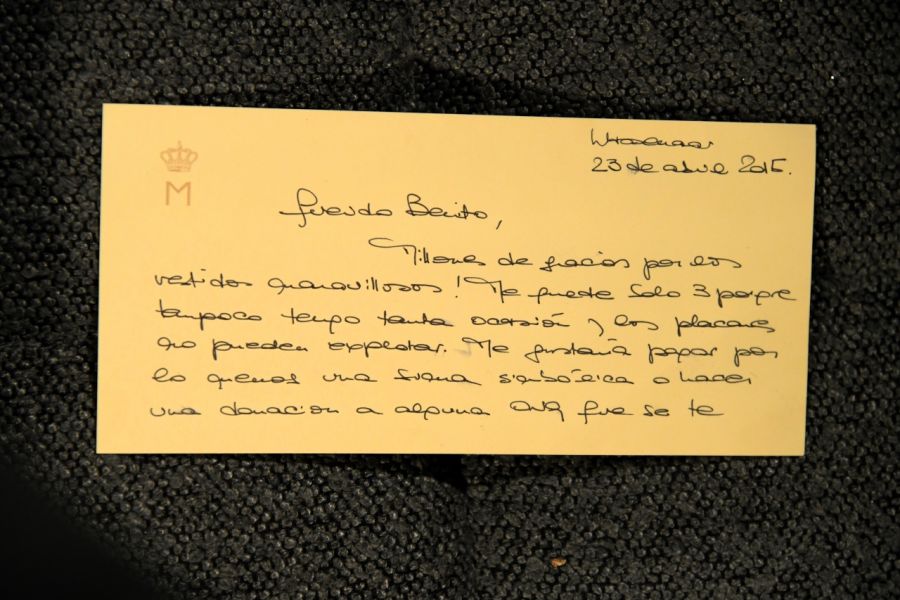 M
Wassenaar
23 de abril 2015.
Querido Benito,
Millones de gracias por los
vestidos maravillosos! Me quede Solo 3 porque
tampoco tengo tanta ocasión y los placares
no pueden explotar. Me gustaría pagar por
lo menos una suma simbólica o hacer
una donacion a alguna ONG que se te